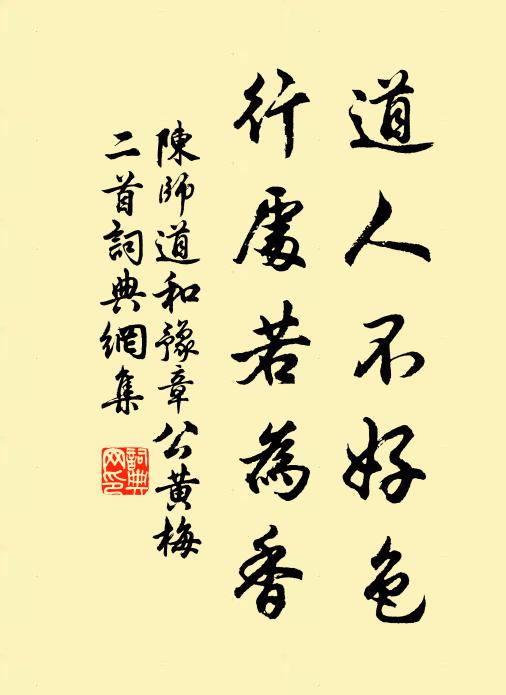 道人不好色
行處若為香
陳師道和豫章公黃梅
二首詞典網集
詞典網印